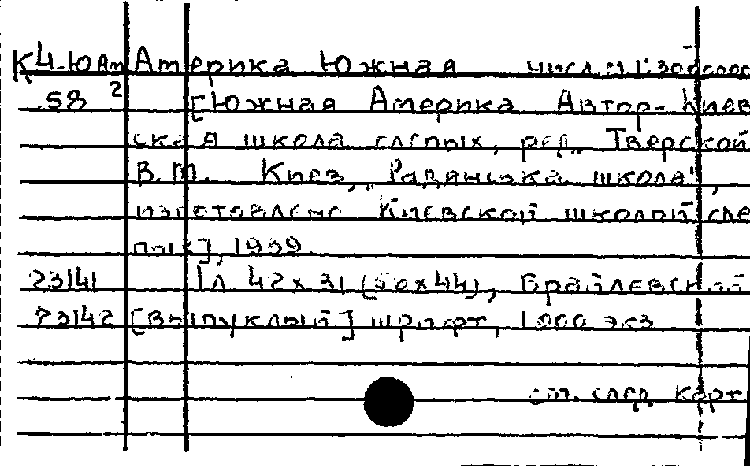 К4-Ю Ам Америка Южная числ. 1:30000000
58 2 [Южная Америка Автор- Киев
ская школа слепых, ред. Тверской
В.М. Киев, "Радянська школа",
изготовлено Киевской школой сле
пых], 1959
23141 1л 42х31 (50х44), Брайлевский
23142 [выпуклый] шрифт, 1000 экз
см. след. карт